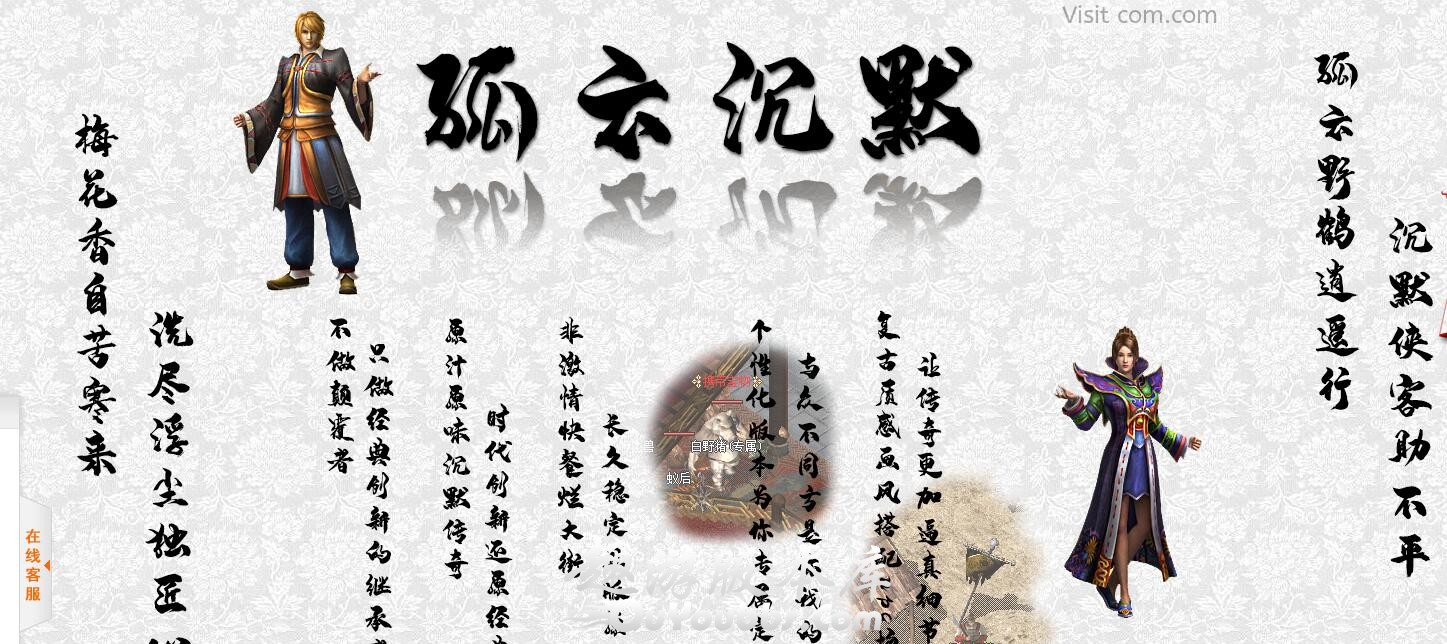 Visit com.com
孤云沉默
孤云野鹤逍遥行
沉默侠客助不平
梅花香自苦寒来
洗尽浮尘独匠
不做颠覆者
只做经典创新的继承
原汁原味沉默传奇
时代创新还原经
非激情快餐烂大街
长久稳定
个性化版本为你专属定
与众不同方是你我的
复古质感画风搭配
让传奇更加逼真细节
携带宝贝
白野猪(专属)
兽
蚁后
在线客服